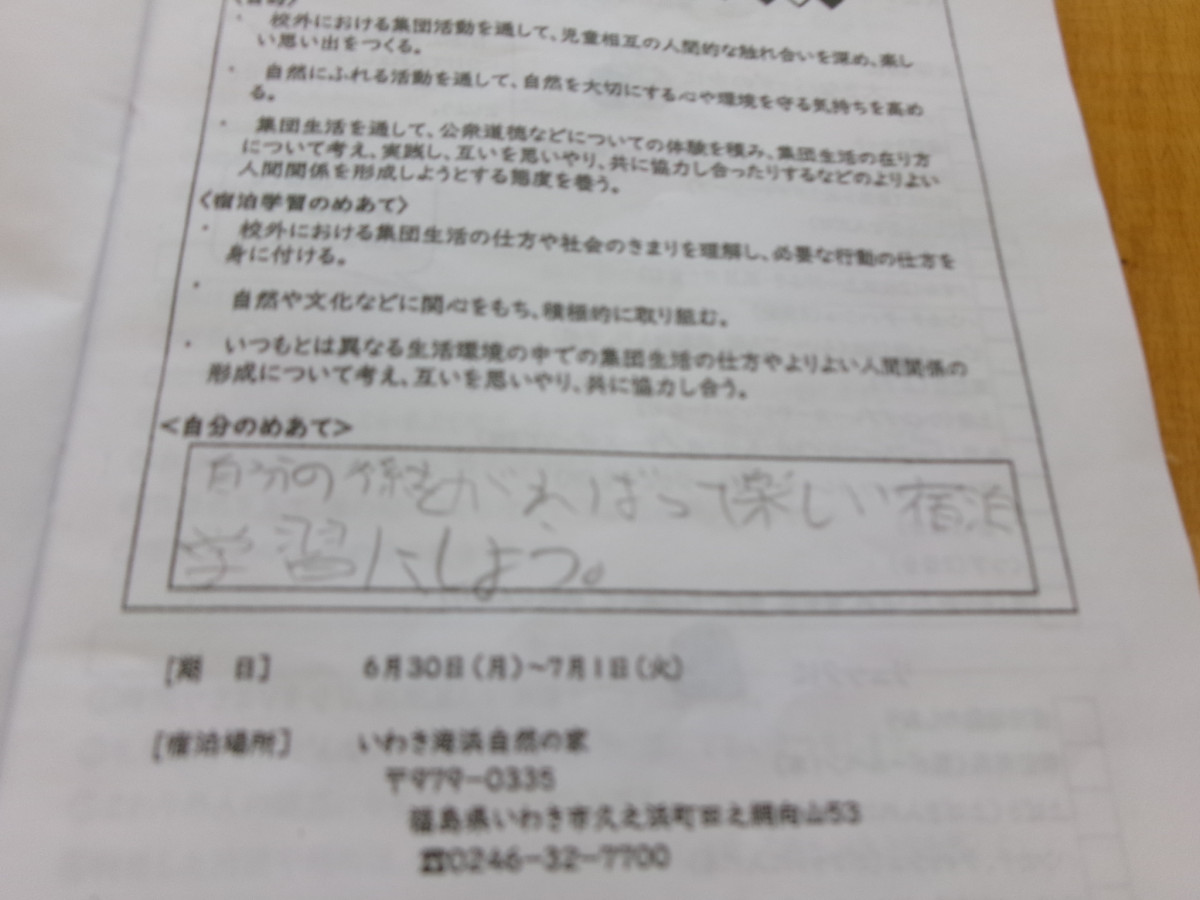 ・校外における集団活動を通して、児童相互の人間的な触れ合いを深め、楽し
い思い出をつくる。
・自然にふれる活動を通して、自然を大切にする心や環境を守る気持ちを高め
る。
・集団生活を通して、公衆道徳などについての体験を積み、集団生活の在り方
について考え、実践し、互いを思いやり、共に協力し合ったりするなどのよりよい
人間関係を形成しようとする態度を養う。
〈宿泊学習のめあて〉
・校外における集団生活の仕方や社会のきまりを理解し、必要な行動の仕方を
身に付ける。
・自然や文化などに関心をもち、積極的に取り組む。
・いつもとは異なる生活環境の中での集団生活の仕方やよりよい人間関係の
形成について考え、互いを思いやり、共に協力し合う。
<自分のめあて>
自分の係をがんばって楽しい宿泊
学習にしよう。
[期 日] 6月30日(月)~7月1日(火)
[宿泊場所] いわき海浜自然の家
〒979-0335
福島県いわき市久之浜町田之網向山53
☎0246-32-7700